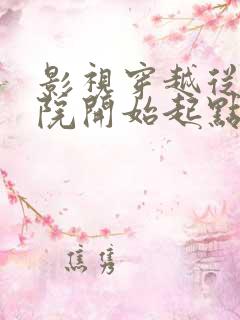 影視穿越從
院開始起點
焦隽